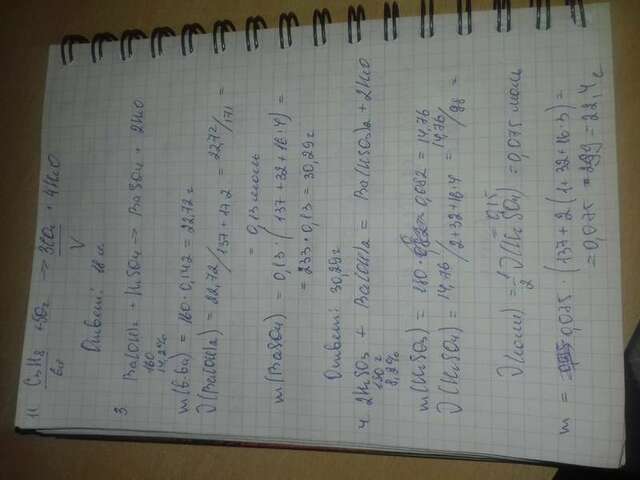 11. C3H8 + 5O2 → 3CO2 + 4H2O
6л V
Ответ: 18 л.
3.
Ba(OH)2 + H2SO4 → BaSO4 + 2H2O
160
14,2%
m(в-ва) = 160 · 0,142 = 22,72 г
ν(Ba(OH)2) = 22,72/137 + 17·2 = 22,72/171 =
= 0,13 моль
m(BaSO4) = 0,13 · (137 + 32 + 16·4) =
= 233 · 0,13 = 30,29 г
Ответ: 30,29 г
4. 2H2SO3 + Ba(OH)2 = Ba(HSO3)2 + 2H2O
180 г
8,2%
m(H2SO3) = 180 · 0,082 = 14,76
ν(H2SO4) = 14,76/2+32+16·4 = 14,76/98 =
= 0,15
ν(соли) = 1/2 ν(H2SO4) = 0,075 моль
m = 0,075 · (137 + 2(1+32+16·3) =
= 0,075 · 299 = 22,4 г